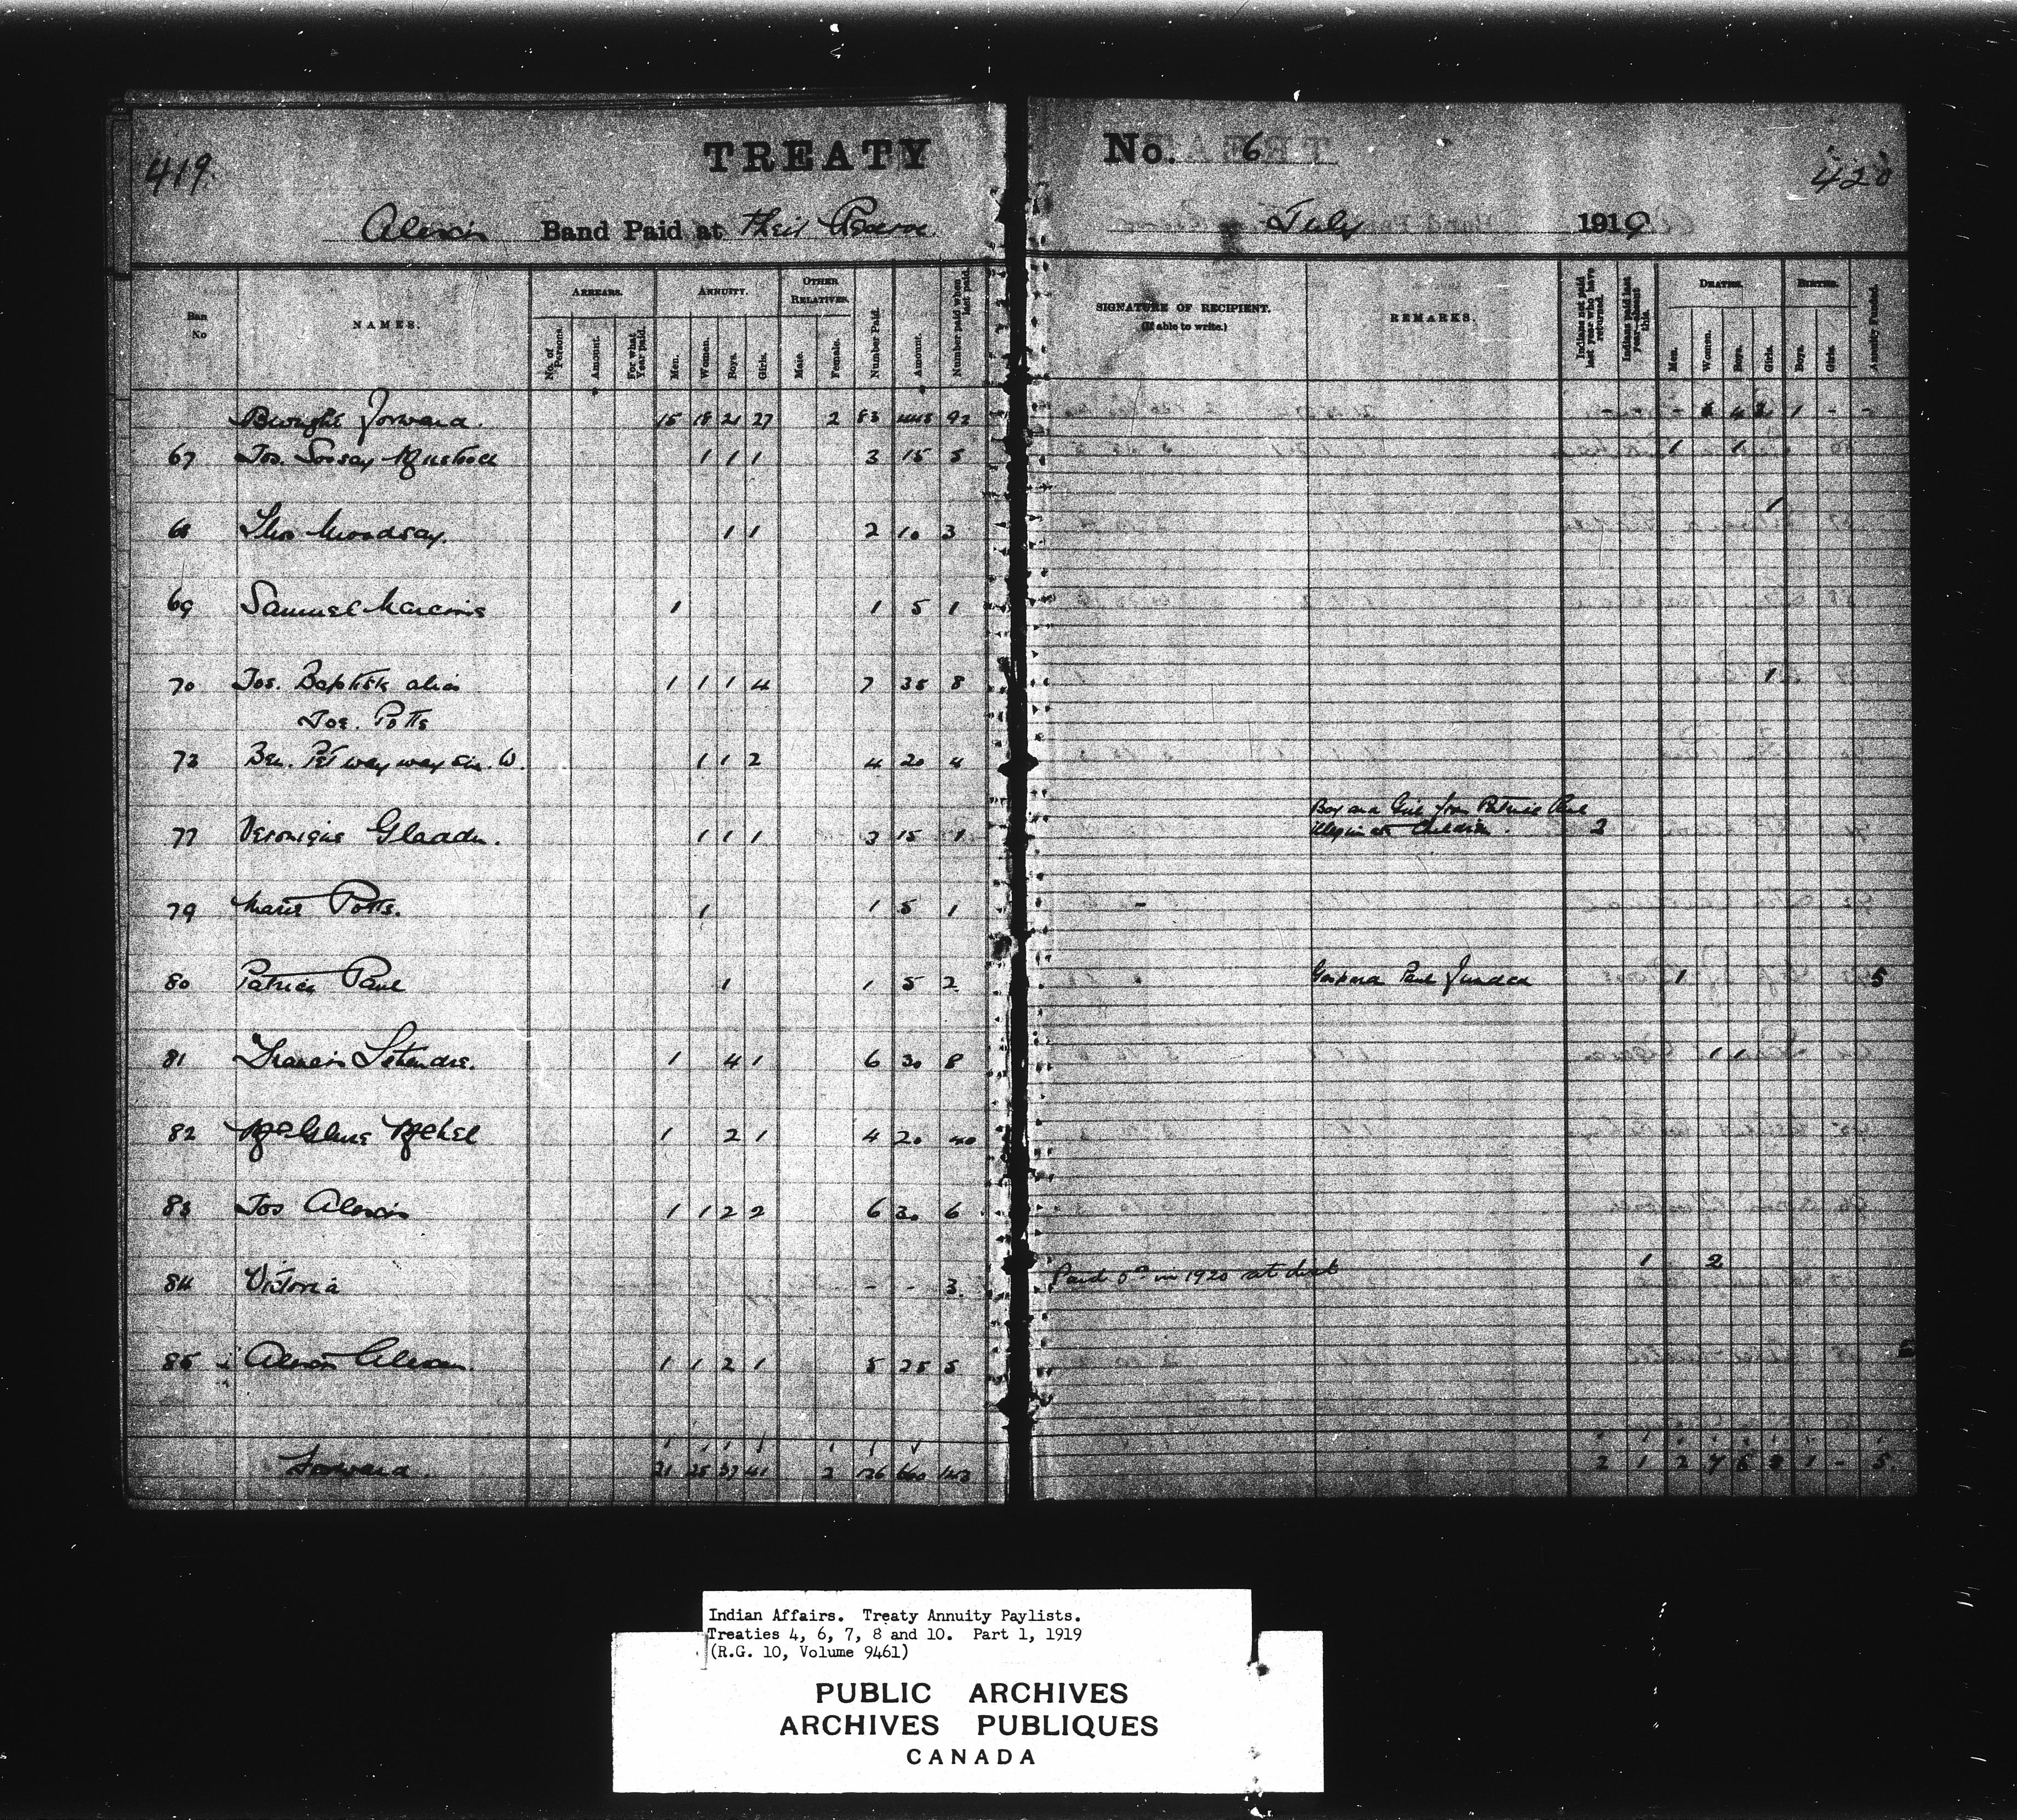 419.
TREATY
No. 6
420
Alexis Band Paid at their Reserve
July 1919
Ban No
NAMES.
ARREARS.
No. of Persons.
Amount.
For what Year paid.
ANNUITY.
Men.
Women.
Boys.
Girls.
OTHER RELATIVES.
Male.
Female.
Number Paid.
Amount.
Number paid when last paid.
SIGNATURE OF RECIPIENT.
(If able to write.)
REMARKS.
Indians not paid last year who have returned.
Indians paid last year—absent this.
DEATHS.
Men.
Women.
Boys.
Girls.
BIRTHS.
Boys.
Girls.
Annuity Funded.
Brought forward. 15 18 21 27 2 83 92
67 Jos. 1 1 1 3 15 5 1 1
1
68 1 1 2 10 3
69 Samuel 1 1 5 1
70 Jos. Baptiste alias 1 1 1 4 7 35 8 1
Joe. Potts
73 Ben. W. 1 1 2 4 20 4
Boy and Girl from Patrick Paul
77 Veronique 1 1 1 3 15 1 illegimate Children. 2
79 Marie Potts. 1 1 5 1
80 Patrick Paul 1 1 5 2 Paul funded 1 5
81 Francis 1 4 1 6 30 8 1 1
82 1 2 1 4 20
83 Jos Alexis 1 1 2 2 6 30 6
84 Victoria - - 3. Paid in 1920 1 2
85 Alexis 1 1 2 1 5 25 5
Forward. 21 25 37 41 2 126 143 2 1 2 7 1 - 5.
Indian Affairs. Treaty Annuity Paylists.
Treaties 4, 6, 7, 8 and 10. Part 1, 1919
(R.G. 10, Volume 9461)
PUBLIC ARCHIVES
ARCHIVES PUBLIQUES
CANADA